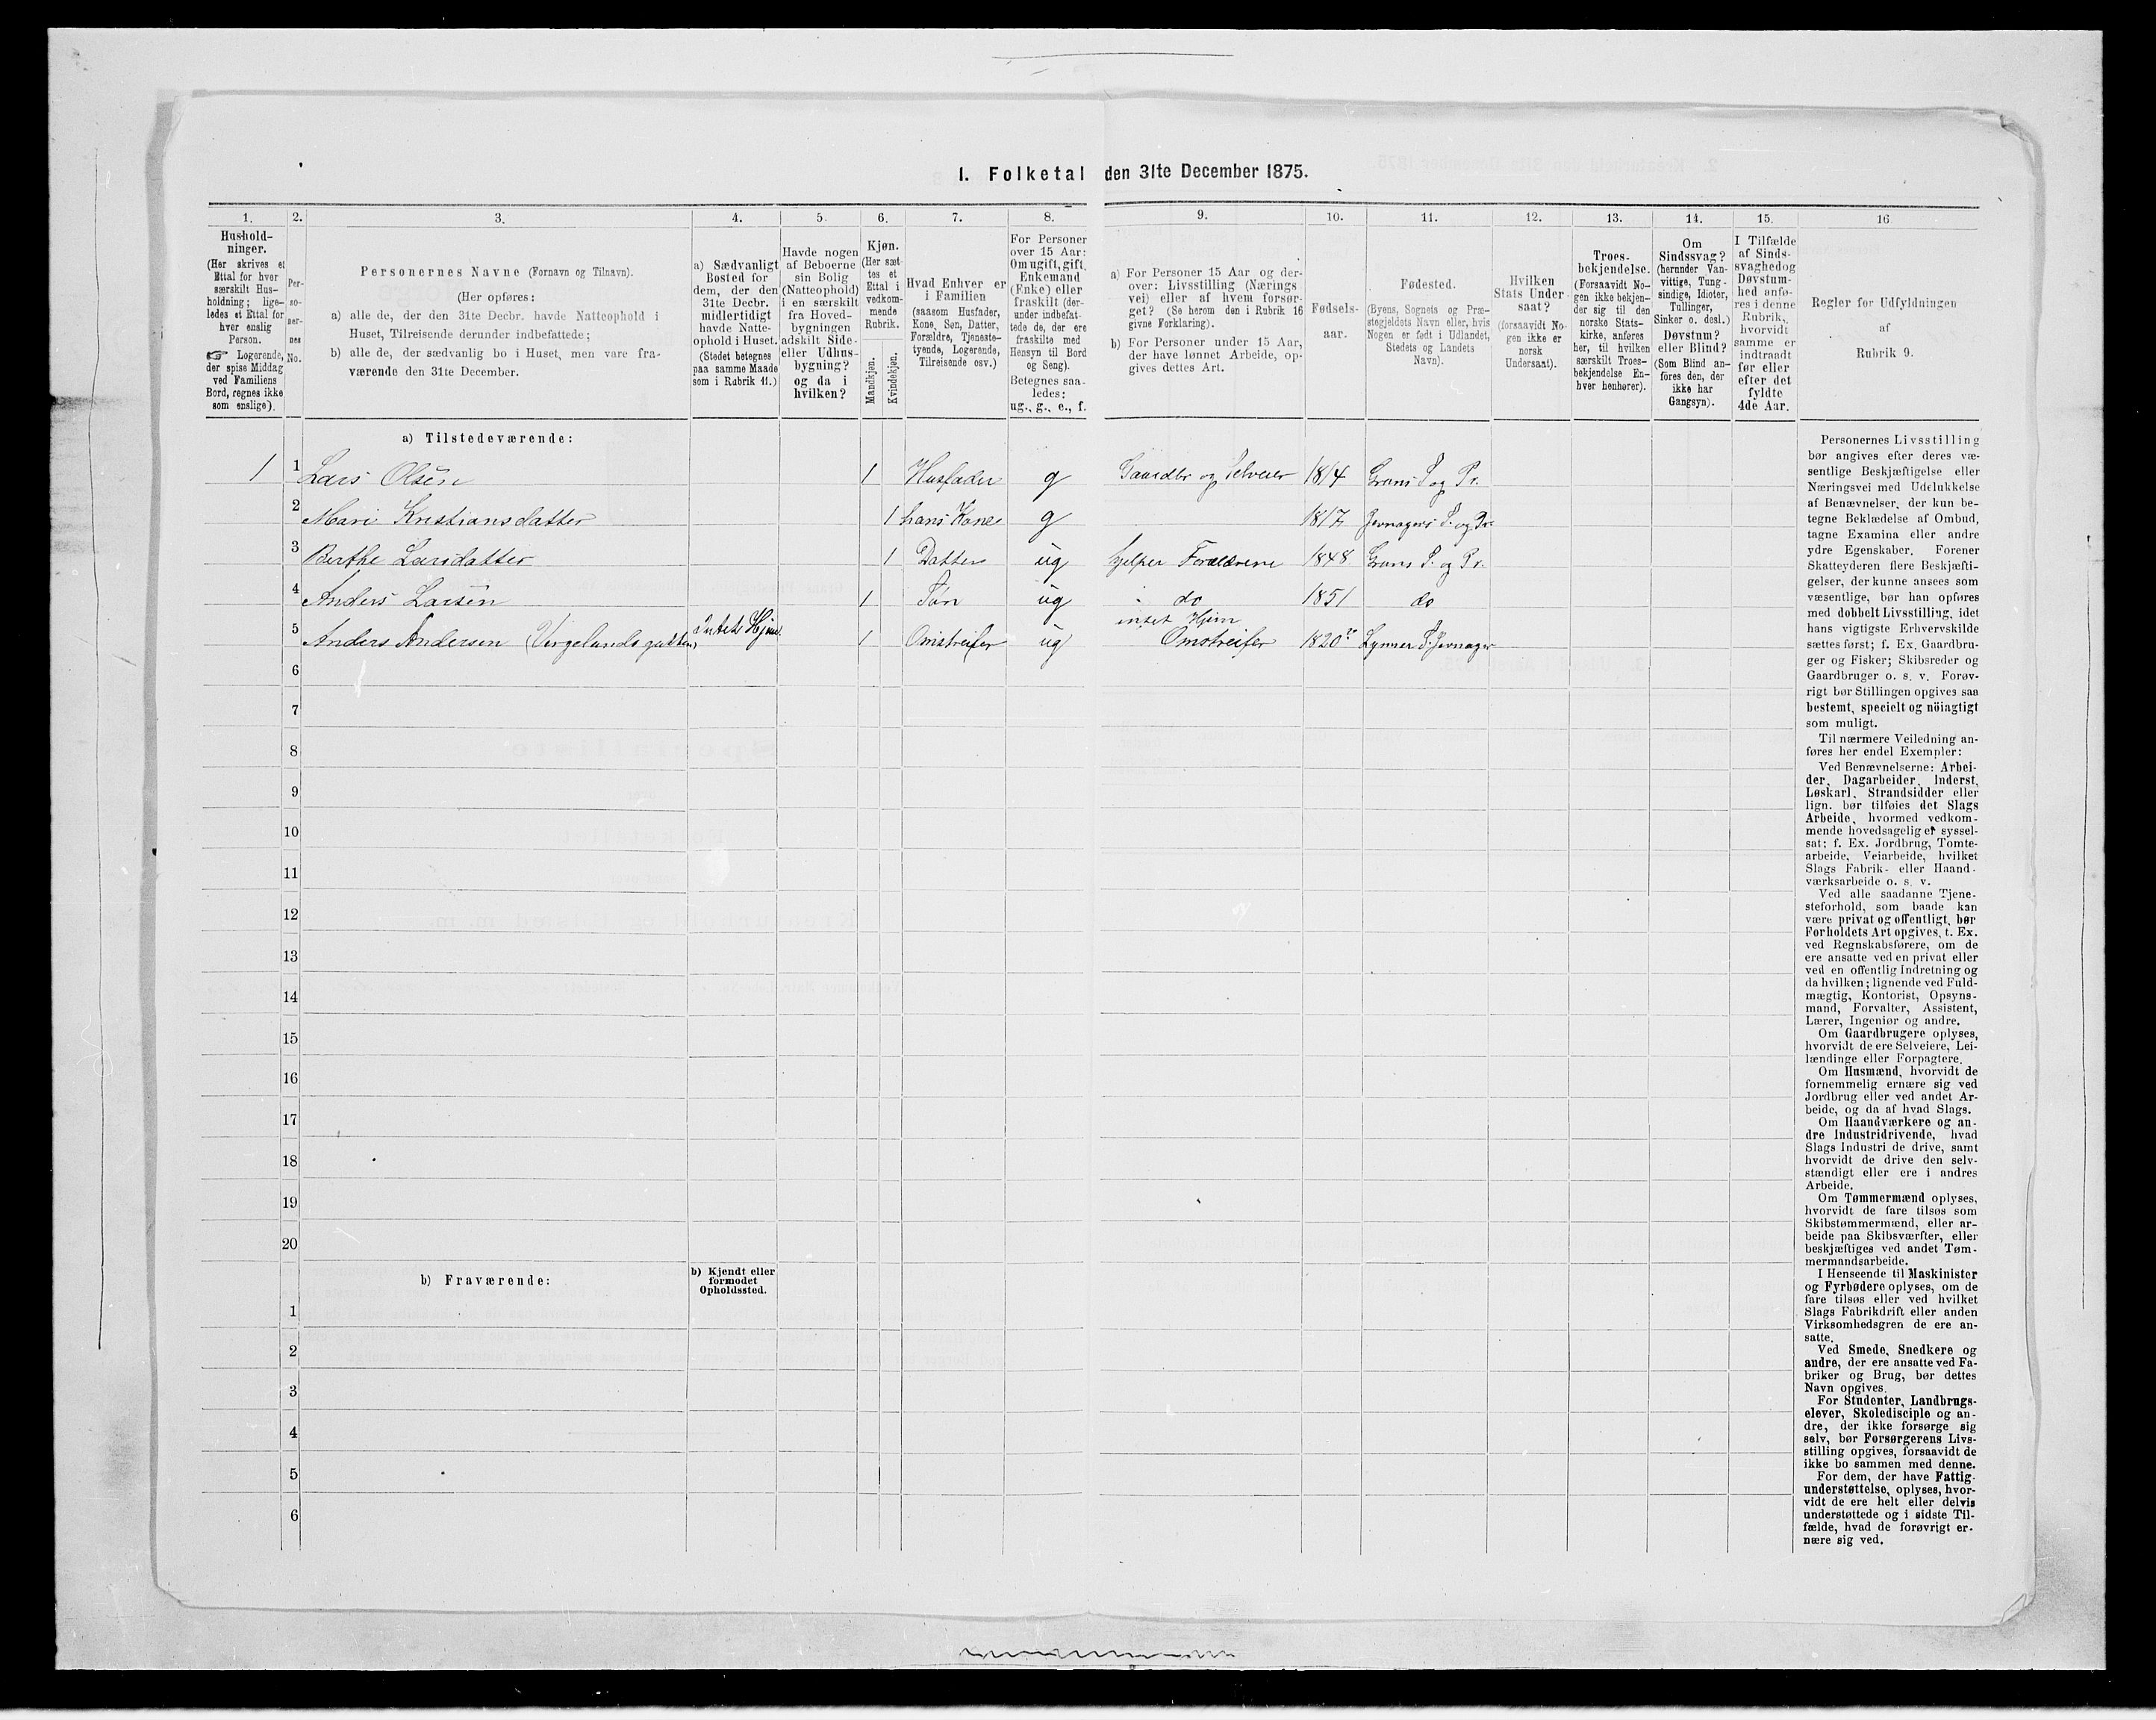 I. Folketal den 31te December 1875.
1.
2.
3.
4.
5.
6.
7.
8.
9.
10.
11.
12.
13.
14.
15.
16
Hushold-
ninger.
(Her skrives et
Ettal for hver
særskilt Hus-
holdning; lige-
ledes et Ettal for
hver enslig
Person.
☞ Logerende,
der spise Middag
ved Familiens
Bord, regnes ikke
som enslige).
Per-
so-
ner-
nes
No.
Personernes Navne (Fornavn og Tilnavn).
(Her opføres:
a) alle de, der den 31te Decbr. havde Natteophold i
Huset, Tilreisende derunder indbefattede;
b) alle de, der sædvanlig bo i Huset, men vare fra-
værende den 31te December.
a) Sædvanligt
Bosted for
dem, der den
31te Decbr.
midlertidigt
havde Natte-
ophold i Huset.
(Stedet betegnes
paa samme Maade
som i Rubrik 11.)
Havde nogen
af Beboerne
sin Bolig
(Natteophold)
i en særskilt
fra Hoved-
bygningen
adskilt Side-
eller Udhus-
bygning?
og da i
hvilken?
Kjøn.
(Her sæt-
tes et
Ettal i
vedkom-
mende
Rubrik.
Mandkjøn.
Kvindekjøn.
Hvad Enhver er
i Familien
(saasom Husfader,
Kone, Søn, Datter,
Forældre, Tjeneste-
tyende, Logerende,
Tilreisende osv.)
For Personer
over 15 Aar:
Om ugift, gift,
Enkemand
(Enke) eller
fraskilt (der-
under indbefat-
tede de, der ere
fraskilte med
Hensyn til Bord
og Seng).
Betegnes saa-
ledes:
ug., g., e., f.
a) For Personer 15 Aar og der-
over: Livsstilling (Nærings
vei) eller af hvem forsør-
get? (Se herom den i Rubrik 16
givne Forklaring).
b) For Personer under 15 Aar,
der have lønnet Arbeide, op-
gives dettes Art.
Fødsels-
aar.
Fødested.
(Byens, Sognets og Præ-
stegjeldets Navn eller, hvis
Nogen er født i Udlandet,
Stedets og Landets
Navn).
Hvilken
Stats Under-
saat?
(forsaavidt No-
gen ikke er
norsk
Undersaat).
Troes-
bekjendelse.
(Forsaavidt No-
gen ikke bekjen-
der sig til den
norske Stats-
kirke, anføres
her, til hvilken
særskilt Troes-
bekjendelse En-
hver henhører).
Om
Sindssvag?
(herunder Van-
vittige, Tung-
sindige, Idioter,
Tullinger,
Sinker o. desl.)
Døvstum?
eller Blind?
(Som Blind an-
føres den, der
ikke har
Gangsyn).
I Tilfælde
af Sinds-
svaghedog
Døvstum-
hed anfø-
res i denne
Rubrik,
hvorvidt
samme er
indtraadt
før eller
efter det
fyldte
4de Aar.
Regler for Udfyldningen
af
Rubrik 9.
a) Tilstedeværende:
1 1 Lars Olsen 1 Husfader g Gaardbr og Selveier 1814 Grans S og Pr.
2 Mari Kristiansdatter 1 hans Kone g 1817 Jevnagers S. og Pr.
3 Berthe Larsdatter 1 Datter ug hjelper Forældrene 1848 Grans S. og Pr.
4 Anders Larsen 1 Søn ug do 1851 do
5 Anders Andersen (Vergelandsgutten) Intet Hjem 1 Omstreifer ug intet Hjem Omstreifer 1820 Lynner S. Jevnager
6
7
8
9
10
11
12
13
14
15
16
17
18
19
20
b) Fraværende:
b) Kjendt eller
formodet
Opholdssted.
1
2
3
4
5
6
Personernes Livsstilling
bør angives efter deres væ-
sentlige Beskjæftigelse eller
Næringsvei med Udelukkelse
af Benævnelser, der kun be-
tegne Beklædelse af Ombud,
tagne Examina eller andre
ydre Egenskaber. Forener
Skatteyderen flere Beskjæfti-
gelser, der kunne ansees som
væsentlige, bør han opføres
med dobbelt Livsstilling, idet
hans vigtigste Erhvervskilde
sættes først; f. Ex. Gaardbru-
ger og Fisker; Skibsreder og
Gaardbruger o. s. v. Forøv-
rigt bør Stillingen opgives saa
bestemt, specielt og nöiagtigt
som muligt.
Til nærmere Veiledning an-
føres her endel Exempler:
Ved Benævnelserne: Arbei-
der, Dagarbeider, Inderst,
Løskarl, Strandsidder eller
lign. bør tilføies det Slags
Arbeide, hvormed vedkom-
mende hovedsagelig er syssel-
sat; f. Ex. Jordbrug, Tomte-
arbeide, Veiarbeide, hvilket
Slags Fabrik- eller Haand-
værksarbeide o. s. v.
Ved alle saadanne Tjene-
steforhold, som baade kan
være privat og offentligt, bør
Forholdets Art opgives, t. Ex.
ved Regnskabsførere, om de
ere ansatte ved en privat eller
ved en offentlig Indretning og
da hvilken; lignende ved Fuld-
mægtig, Kontorist, Opsyns-
mand, Forvalter, Assistent,
Lærer, Ingeniør og andre.
Om Gaardbrugere oplyses,
hvorvidt de ere Selveiere, Lei-
lændinge eller Forpagtere.
Om Husmænd, hvorvidt de
fornemmelig ernære sig ved
Jordbrug eller ved andet Ar-
beide, og da af hvad Slags.
Om Haandværkere og an-
dre Industridrivende, hvad
Slags Industri de drive, samt
hvorvidt de drive den selv-
stændigt eller ere i andres
Arbeide.
Om Tømmermænd oplyses,
hvorvidt de fare tilsøs som
Skibstømmermænd, eller ar-
beide paa Skibsværfter, eller
beskjæftiges ved andet Tøm-
mermandsarbeide.
I Henseende til Maskinister
og Fyrbødere oplyses, om de
fare tilsøs eller ved hvilket
Slags Fabrikdrift eller anden
Virksomhedsgren de ere an-
satte.
Ved Smede, Snedkere og
andre, der ere ansatte ved Fa-
briker og Brug, bør dettes
Navn opgives.
For Studenter, Landbrugs-
elever, Skoledisciple og an-
dre, der ikke forsørge sig
selv, bør Forsørgerens Livs-
stilling opgives, forsaavidt de
ikke bo sammen med denne.
For dem, der have Fattig-
understøttelse, oplyses, hvor-
vidt de ere helt eller delvis
understøttede og i sidste Til-
fælde, hvad de forøvrigt er-
nære sig ved.